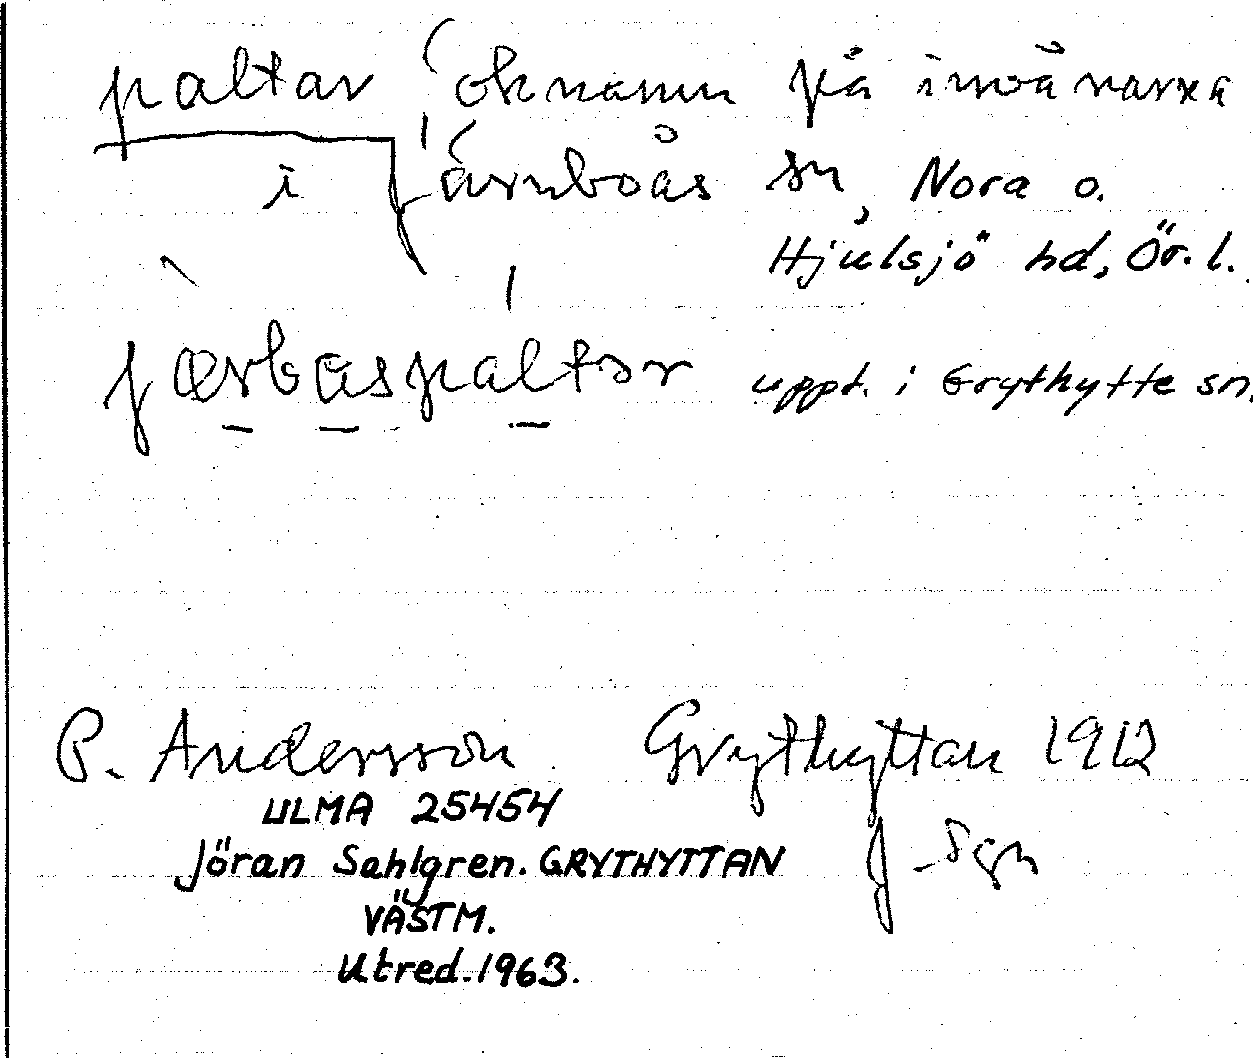 paltar öknamn på invånarna
i Järnboås sn, Nora o.
Hjulsjö hd, Ör. l.
jærbåspáltər uppt. i Grythytte sn.
P. Andersson Grythyttan 1912
ULMA 25454 J Sgn
Jöran Sahlgren. GRYTHYTTAN
VÄSTM.
Utred. 1963.